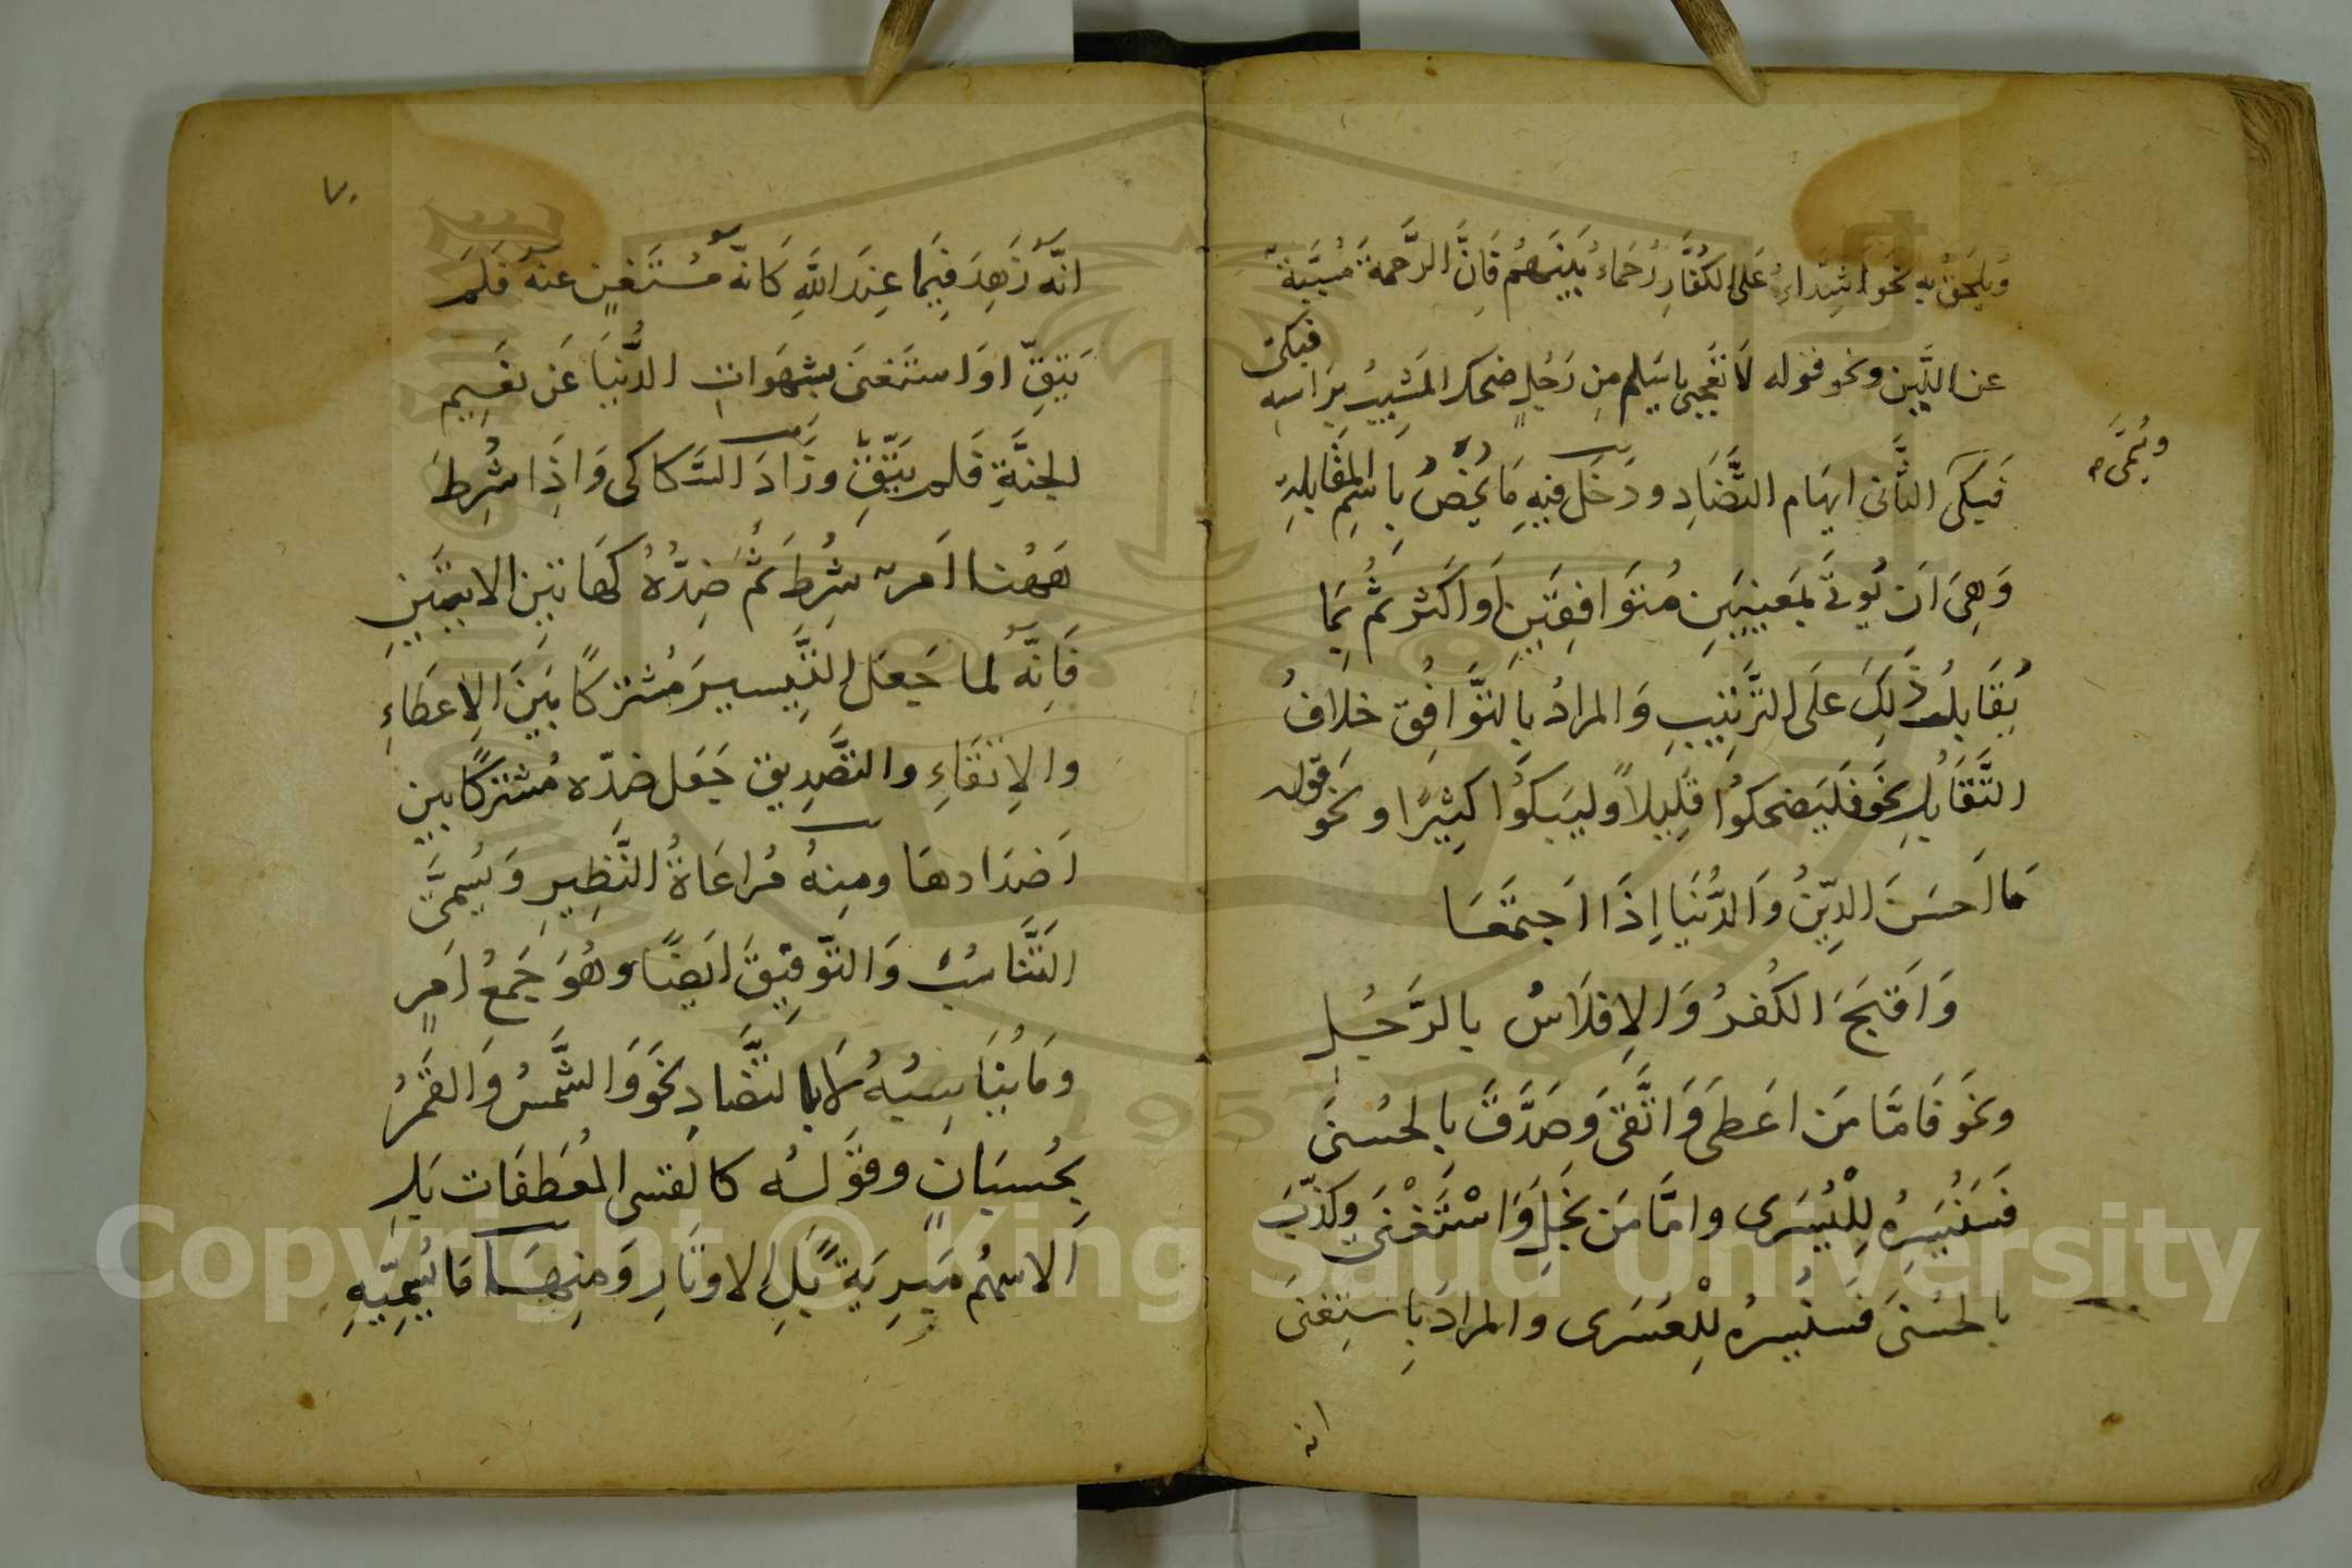 وَيُلحَقُ بِهِ نَحوُ اَشِدَّاءُ عَلَى الكُفَّارِ رُحَمَاءُ بَينَهُم فَاِنَّ الرَّحمَةَ مُسَبَّبَةٌ
عن اللّين ونحو قوله لَا تَعجَبِى يا سَلمُ مِن رَجُلٍ ضحك المَشِيبُ بِرَاسِه فبكى
ويُسمَّى
فَبَكَى الثَّانى ايهام التَّضَادِ ودَخَلَ فيهِ مَا يَخُصُّ بِاسمِ المُقَابلةِ
وَهِىَ اَن يُوتَى بِمَعنيَينِ مُتَوَافِقَينِ اَو اَكثَر ثُمَّ بِمَا
يُقَابِلُ ذَلِكَ عَلَى التَّرتِيبِ وَالمرادُ بِالتَّوَافُقِ خِلَافُ
التَّقَابُلِ نحَو فَليَضحكوُا قَلِيلاً وليَبكوُا كَثِيرًا ونحَو قوله
مَا اَحسَنَ الدِّينُ وَالدُّنيَا اِذَا اَجتَمَعَا
وَاَقبَحَ الكُفرُ وَالاِفلَاسُ بالرَّجُلِ
ونحَو فَامَّا مَن اعَطىَ وَاتَّقىَ وَصَدَّقَ بِالحُسنىَ
فَسَنُيَسِّرُهُ لِلْيُسرَى وامَّا مَن بَخِلَ وَاسْتَغْنىَ وكَذَّبَ
بالحسنىَ فَسنُيَسِّرُهُ لِلْعُسَرى والمرادَ بِاستِغنىَ
انه
٧٠
انَّه زَهِدَ فِيمَا عِندَ اللَّهِ كَانَّه مُستَغنٍ عنه فَلَم
يَتَّقِ اوَ استَغنىَ بشهَوَاتِ الدُّنيَا عَن نعَيِم
الجنَّةِ فَلم يَتَّقِ وزَادَ السَّكاكى وَاذَا شُرِطَ
هَهُنا اَمر شُرِطَ ثَمَّ ضِدُّهُ كَهَاتينِ الايتَينِ
فَاِنَّه لما جَعَل التَّيسيرَ مُشتركًا بَينَ الاِعطَاءِ
والاِتقَاءِ والتصَّدِيق جَعَل ضدّه مُشتركًا بين
اَضدَادهَا ومِنهُ مُراعَاةُ النَّظِيرِ وَيُسمىَّ
التَّنَاسُبَ وَالتوَّفِيقَ ايَضًا وهُوَ جَمعُ اَمرٍ
ومَا يُنَاسِبُهُ لَا بالتضَّادِ نحَو وَالشَّمسُ وَالقمَرُ
بِحُسبَانٍ وقوَلُه كالقسى المُعَطفَات بَلِ
اَلاسهُم مَبرِيةً بَلِ الاوتَارِ وَمنِهَا مَا يُسمِّيهِ